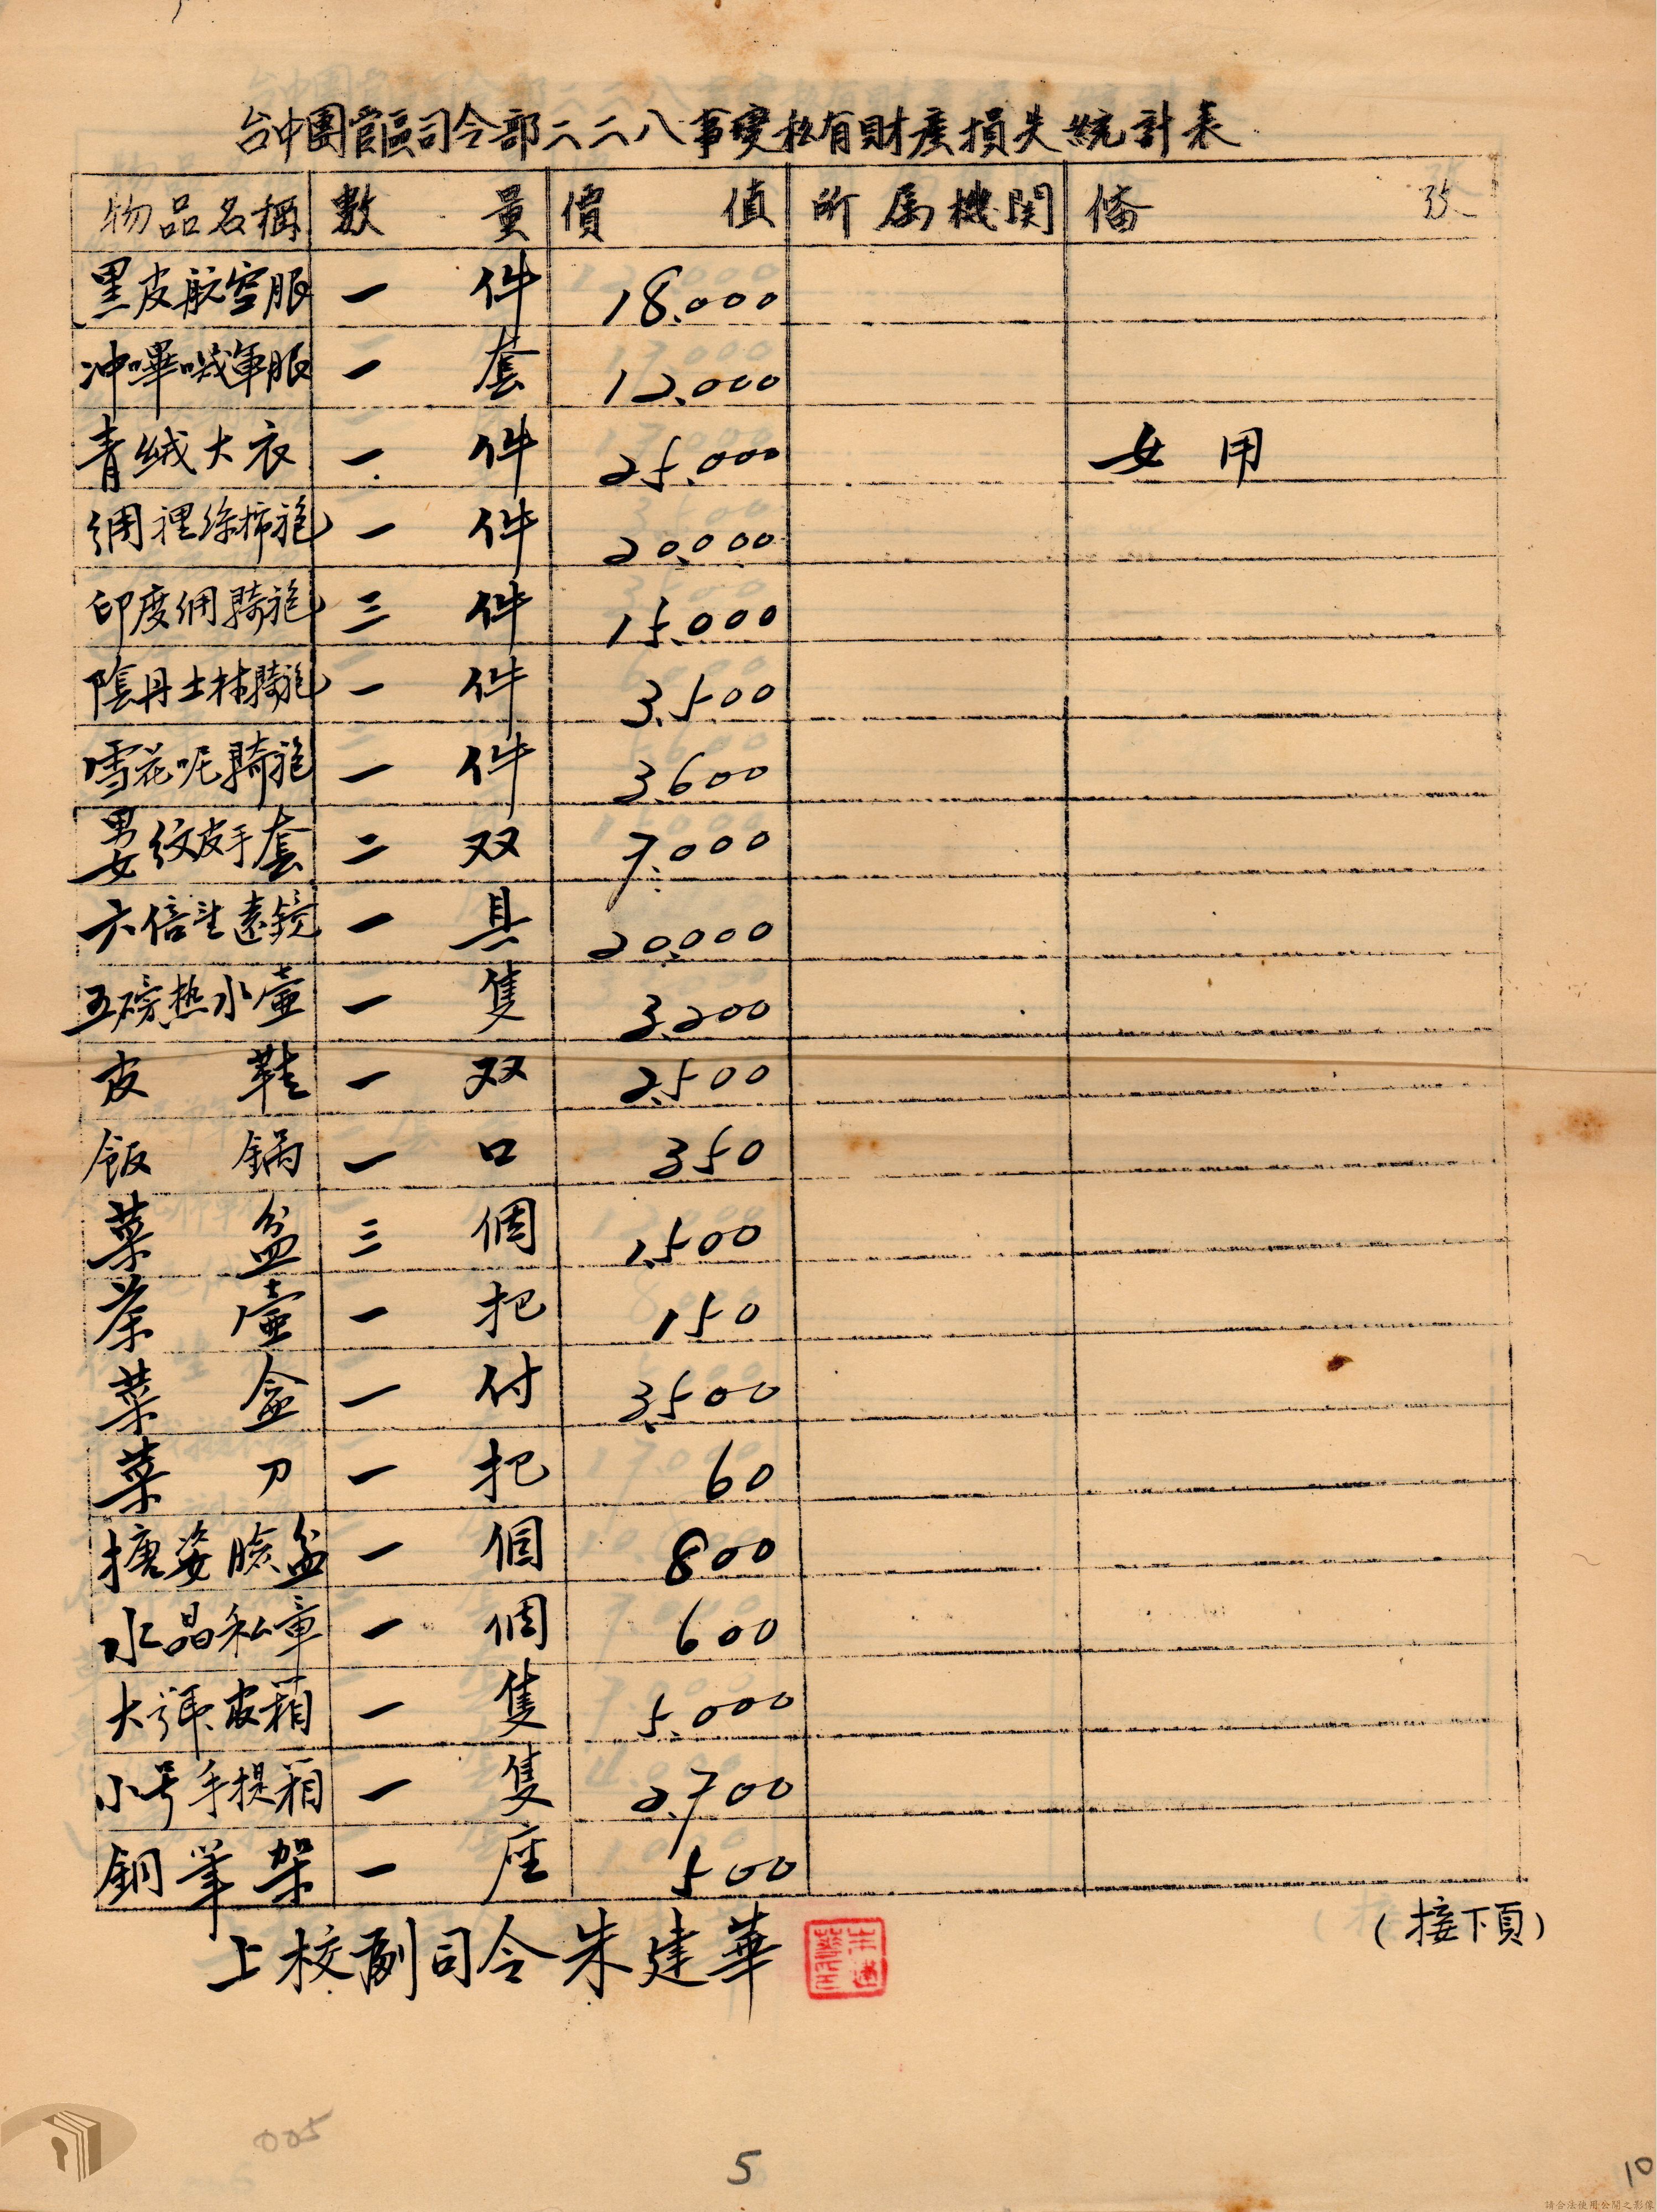 台中團管區司令部二二八事變私有財產損失統計表
物品名稱 數量 價值 所属機関 備 35
黑皮航空服 一件 18.000
冲嗶嘰軍服 一套 12.000
青絨大衣 一件 25.000 女用
綢裡綿袍 一件 20.000
印度綢騎袍 三件 15.000
陰丹士林騎袍 一件 3.500
雪花呢騎袍 一件 3.600
男女紋皮手套 二双 7.000
六倍望遠鏡 一具 20.000
五磅热水壺 一隻 3.200
皮鞋 一双 2.500
飯鍋 一口 350
菜盆 三個 1.500
茶壺 一把 150
菜盒 一付 3.500
菜刀 一把 60
搪姿臉盆 一個 800
水晶私章 一個 600
大號皮箱 一隻 5.000
小号手提箱 一隻 2.700
銅筆架 一座 500
(接下頁)
上校副司令朱建華
005
5
10
請合法使用公開之影像